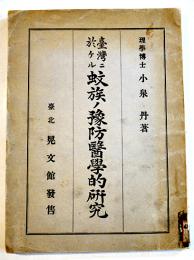 理學博士 小泉丹著
臺灣ニ
於ケル
蚊族ノ豫防醫學的研究
臺北 晃文館發售